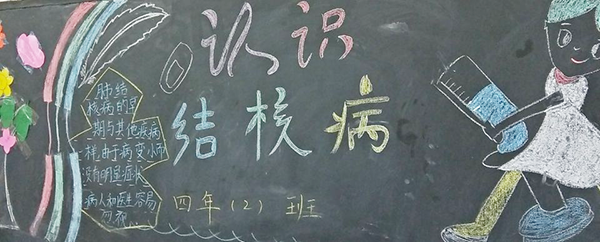 认识
结核病
肺结
核病的早
期与其他疾病
一样,由于病变小而
没有明显症状
病人和医生容易
忽视...
四年(2)班